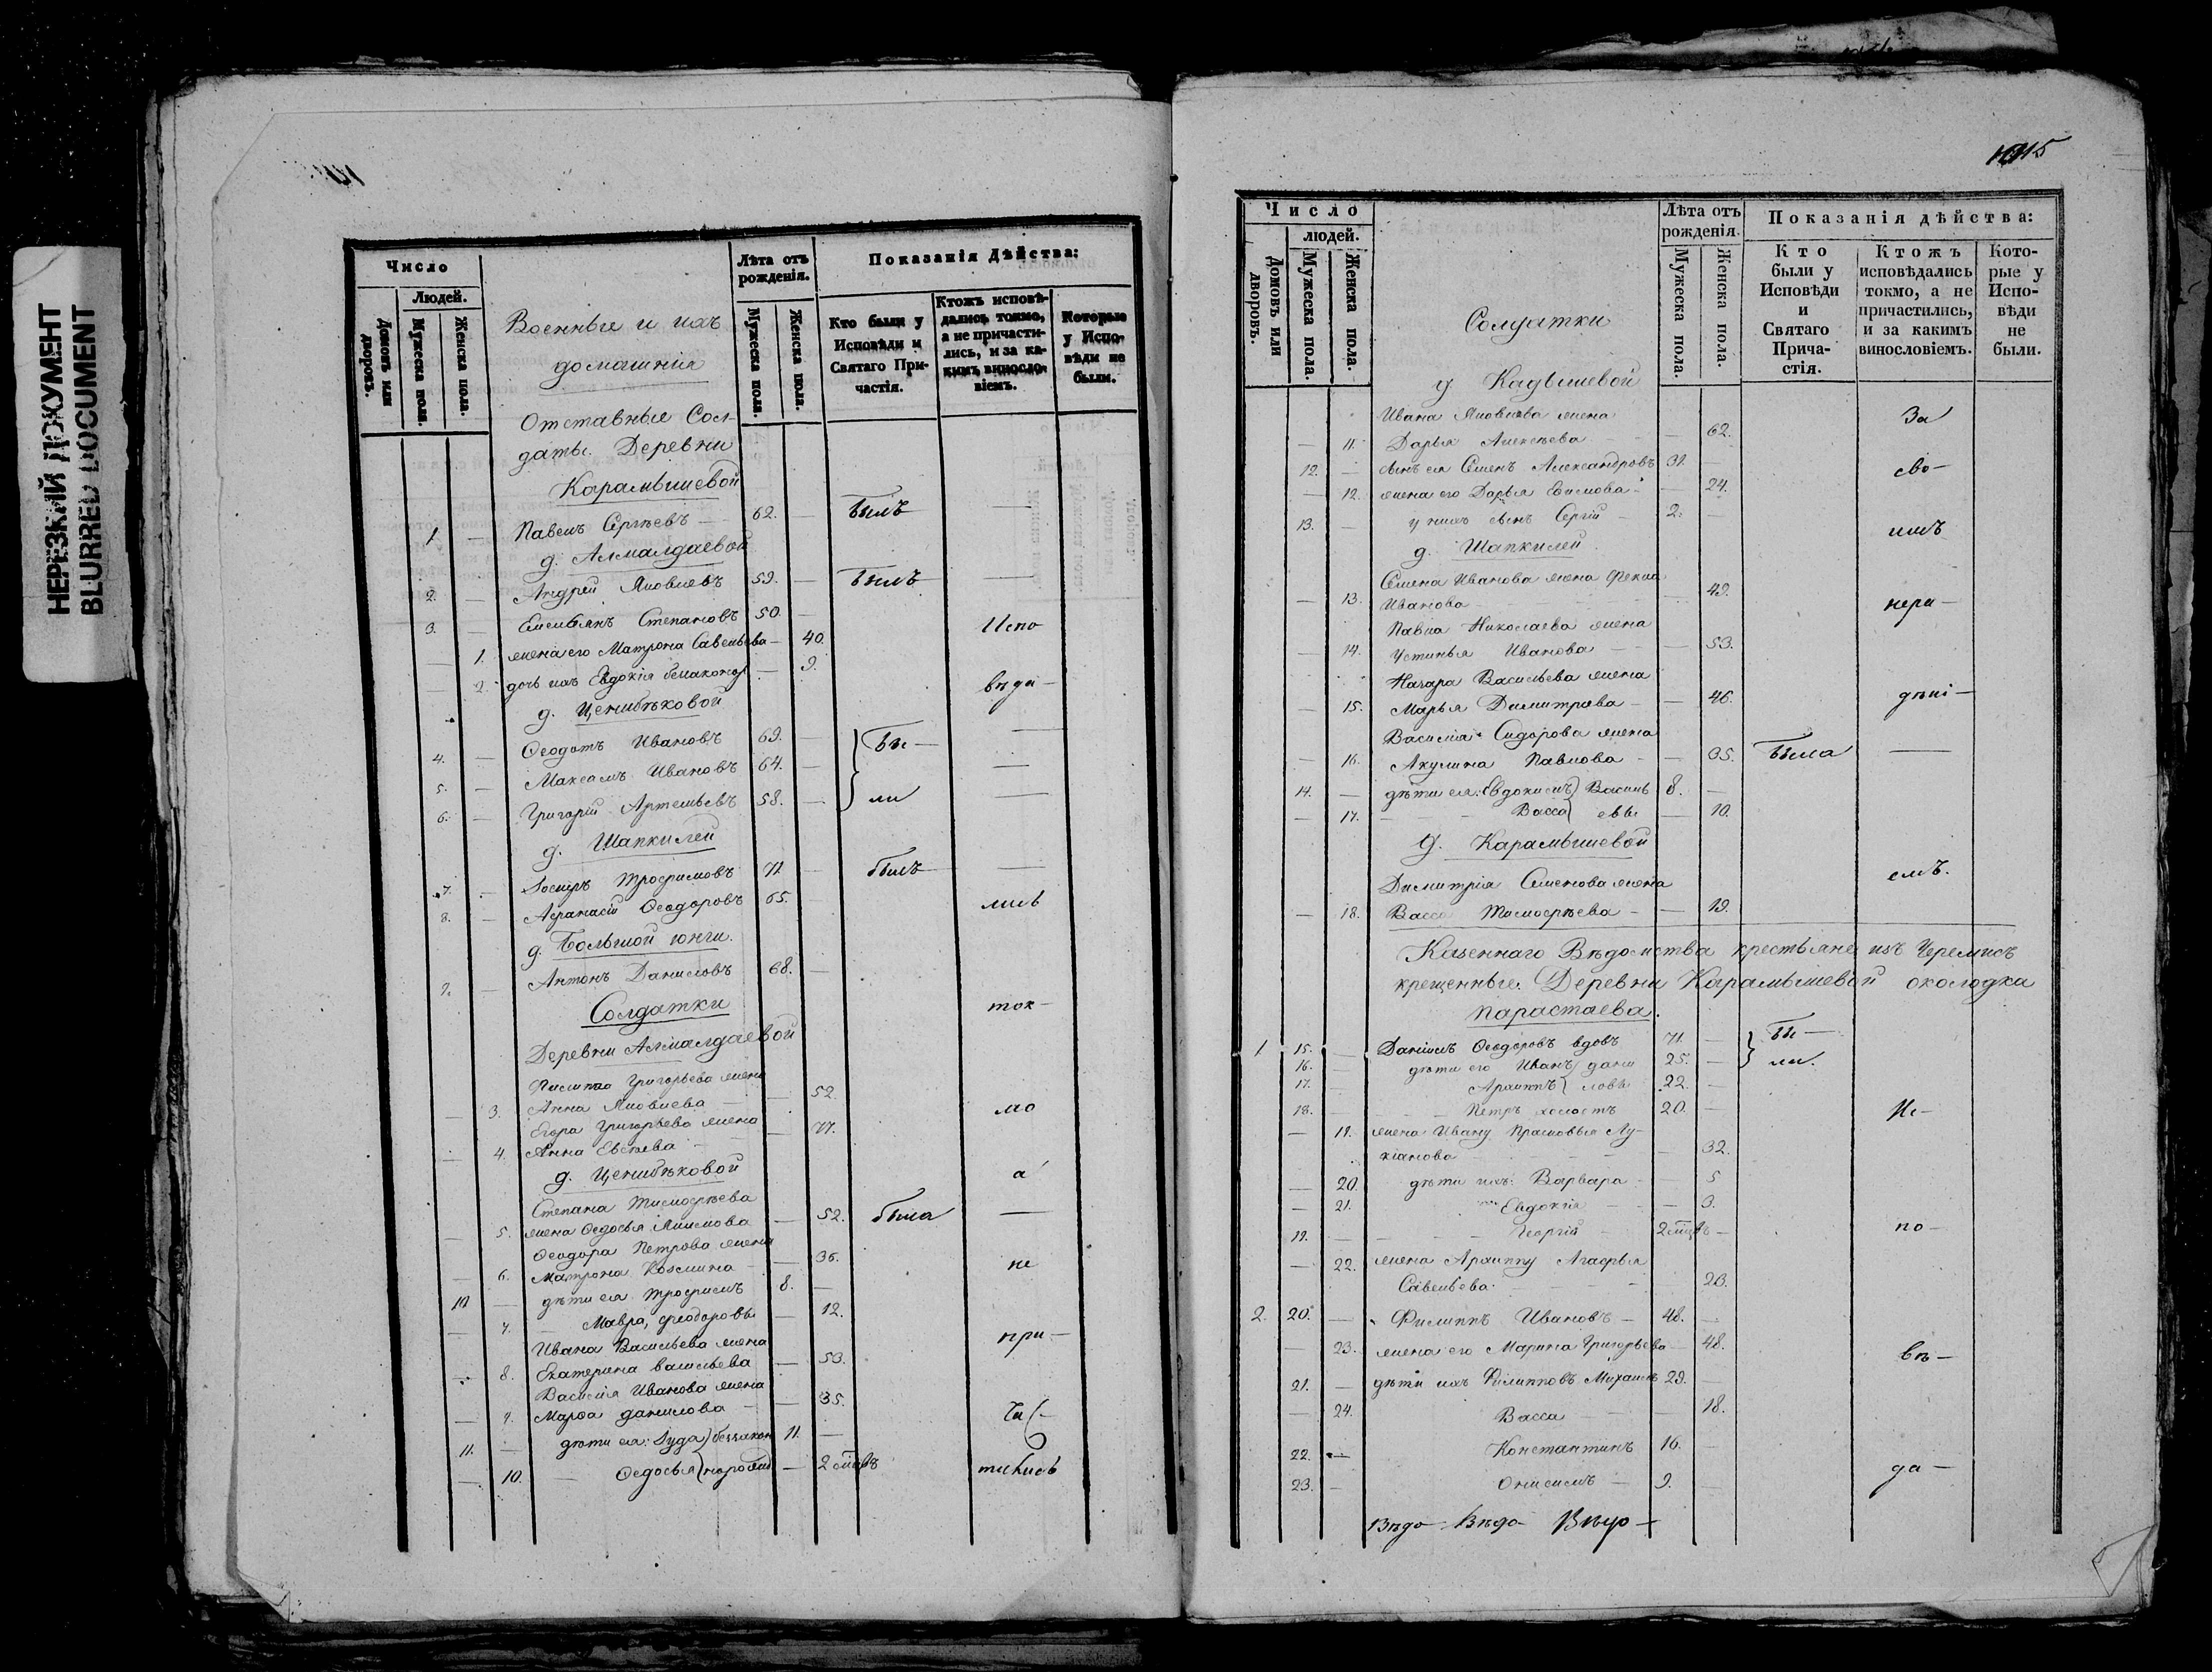 НЕРЕЗКИЙ ДОКУМЕНТ
BLURRED DOCUMENT
Число
Людей.
Домовъ или дворовъ.
Мужеска пола.
Женска пола.
Военные и ихъ
домашнія
Лѣта отъ рожденія.
Мужеска пола.
Женска пола.
Показанія Дѣйства:
Кто были у Исповѣди и Святаго Причастія.
Ктожъ исповѣдались токмо, а не причастились, и за какимъ винословіемъ.
Которые у Исповѣди не были.
Отставные Сол-
даты. Деревни
Карамышевой
1. — Павелъ Сергѣевъ — 62. — Былъ —
д. Алмалдаевой
2. — Андрей Яковлевъ 59. — Былъ —
3. — Емельянъ Степановъ 50. — Испо
— 1. жена его Матрона Савельева — 40.
— 2. дочь ихъ Евдокія — 9. вѣда —
д. Ценибѣковой
4. — Ѳеодотъ Ивановъ 69. — Бы — —
5. — Максимъ Ивановъ 64. — —
6. — Григорій Артемьевъ 58. — ли —
д. Шапкилей
7. — Трофимовъ 71 — былъ —
8. — Афанасій Ѳеодоровъ 65. — лись
д. Большой Юнги.
9. — Антонъ Даниловъ 68. —
Солдатки ток —
Деревни Алмалдаевой
Филиппа Григорьева жена
— 3. Анна Яковлева — — 52. мо
Егора Григорьева жена
— 4. Анна Евсѣева — — 77.
д. Ценибѣковой а
Степана Тимофѣева
— 5. жена Ѳедосья — 52. была —
Ѳеодора Петрова жена
— 6. Матрона Козмина — — 36. не
10 — дѣти ея Трофимъ 8. —
— 7. — Мавра, Ѳеодоровы — 12.
Ивана Васильева жена при —
— 8. Екатерина Васильева — 53.
Василія Иванова жена
— 9. Марѳа Данилова — — 35. ча —
11. — дѣти ея: Іуда 11. —
— 10. — Ѳедосья — 2 стились
115
Число
людей.
Домовъ или дворовъ.
Мужеска пола.
Женска пола.
Солдатки
Лѣта отъ рожденія.
Мужеска пола.
Женска пола.
Показанія дѣйства:
Кто были у Исповѣди и Святаго Причастія.
Ктожъ исповѣдались токмо, а не причастились, и за какимъ винословіемъ.
Которые у Исповѣди не были.
д. Кадышевой
Ивана Яковлева жена За
— 11. Дарья Алексѣева — — 62.
12. — сынъ ея Семенъ Александровъ 31. — сво —
— 12. жена его Дарья Ефимова — — 24.
13. — у нихъ сынъ Сергій — 2. — имъ
д. Шапкилей
Семена Иванова жена Фекла
— 13. Иванова — — 49. нера —
Павла Николаева жена
— 14. Устинья Иванова — — 53.
Назара Васильева жена
— 15. Марья Димитрева — — 46. дѣні —
Василія Сидорова жена
— 16. Акулина Павлова — — 35. Была —
14. — дѣти ея: Евдокимъ Василь 8. —
— 17. — Васса евы — 10.
д. Карамышевой
Димитрія Семенова жена емъ.
— 18. Васса Тимофѣева — — 19.
Казеннаго Вѣдомства крестьяне изъ Черемисъ
крещенные. Деревни Карамышевой околодка
Парастаева.
1 15. — Даніилъ Ѳеодоровъ вдовъ 71. — Бы —
16. — дѣти его Иванъ Дани 25. — ли.
17. Архиппъ ловы 22. —
18. — Петръ холостъ 20. — Ис —
— 19. жена Ивану Прасковья Лу-
кіанова — 32.
— 20 дѣти ихъ: Варвара — — 5
— 21. Евдокія — — 3.
19. — Георгій — 2 — по —
— 22. жена Архиппу Агафья
Савельева — 20.
2. 20. — Филиппъ Ивановъ — 48. —
— 23. жена его Марина Григорьева — 48. вѣ —
21. — дѣти ихъ Филипповъ Михаилъ 29. —
— 24. Васса — — 18.
22. — Константинъ 16. —
23. — Онисимъ — 9. — да —
Вѣдо Вѣдо